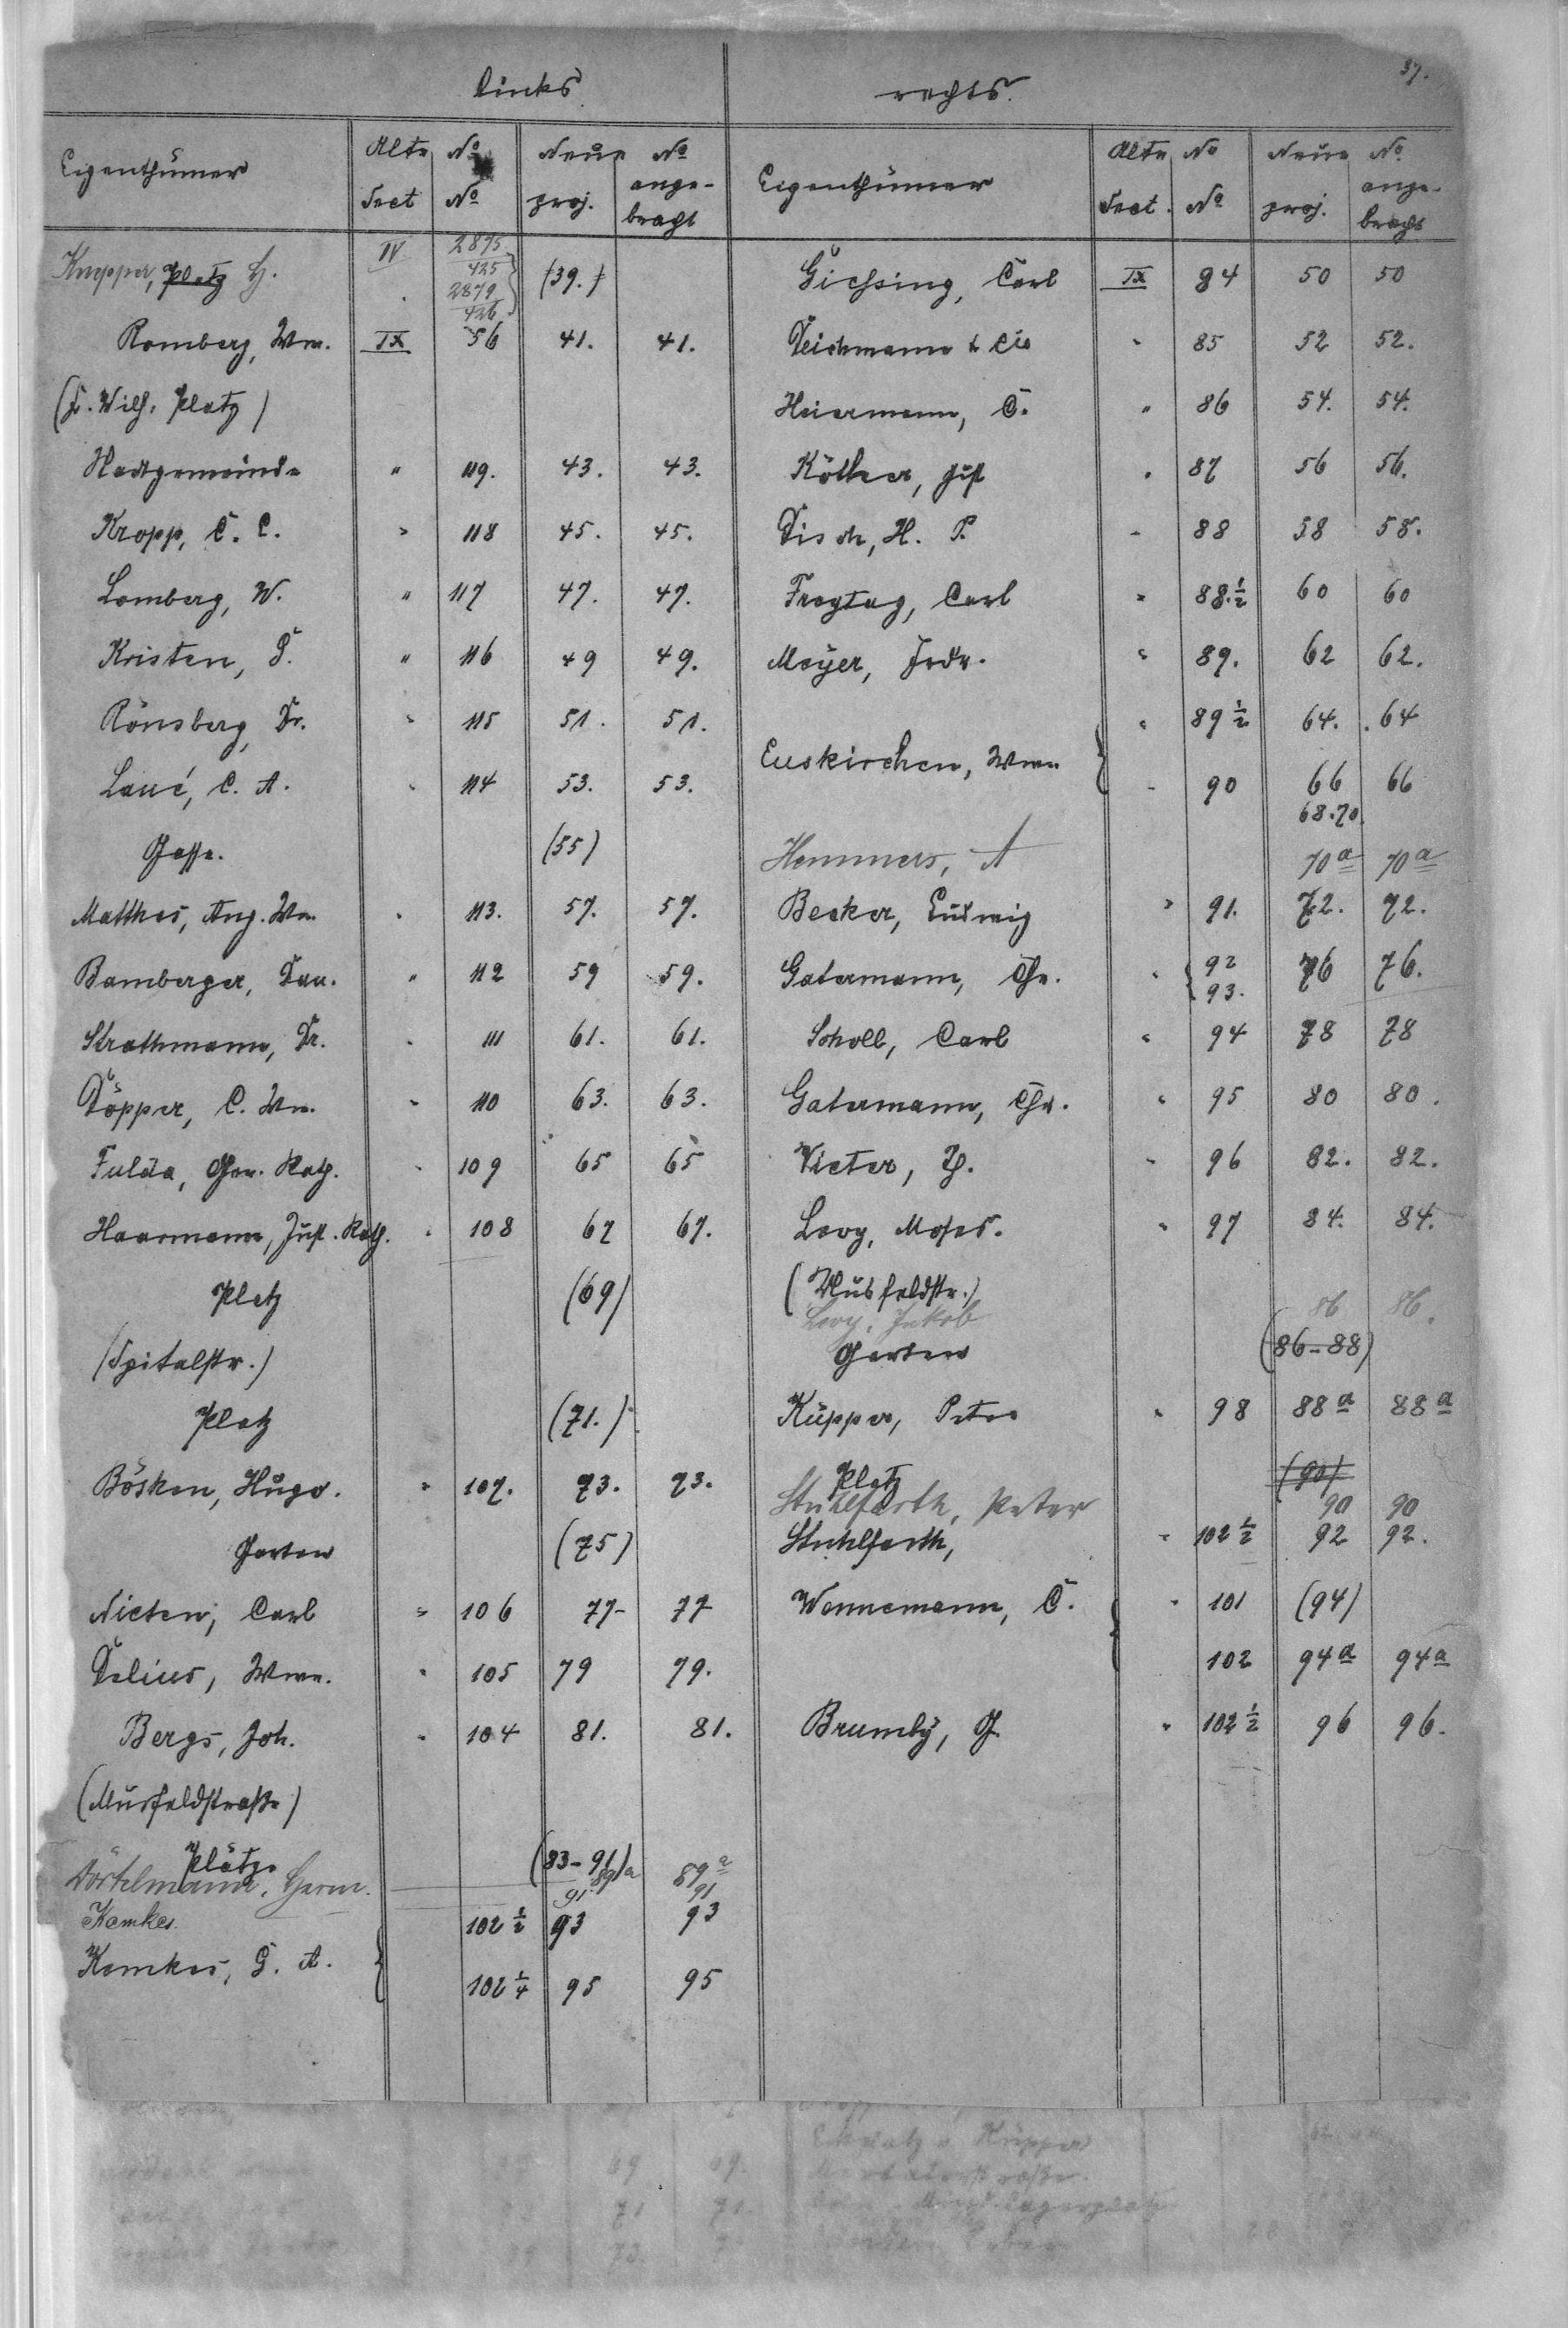 37.
Links
rechts.
Eigenthümer Alte No Neue No Eigenthümer Alte No Neue No
Sect No proj. ange- Sect. No proj. ange-
bracht bracht
Küpper, Platz H. IV 2875/425 2879/426 (39.) Gichsing, Carl IX 84 50 50
Romberg, Wm. IX 56 41. 41. Teichmann & Cie " 85 52 52.
(F. Wilh. Platz) Heiermann, C. " 86 54. 54.
Stadtgemeinde " 119. 43. 43. Köther, Just " 87 56 56.
Kropp, C. C. " 118 45. 45. Disch, H. P. " 88 58 58.
Lomberg, W. " 117 47. 47. Freytag, Carl " 88.½ 60 60
Kristen, F. " 116 49 49. Meyer, Frdr. " 89. 62 62.
Rönsberg, Dr. " 115 51. 51. " 89½ 64. 64
Laué, C. A. " 114 53. 53. Euskirchen, Wwe " 90 66 66
68.70.
Gasse. (55) Hemmers, A 70a 70a
Matthes, Aug. Wm. " 113. 57. 57. Becker, Ludwig " 91. 72. 72.
Bamberger, Dan. " 112 59 59. Gatermann, Chr. " 92 93. 76 76.
Strathmann, Dr. " 111 61. 61. Scholl, Carl " 94 78 78
Döpper, C. Wm. " 110 63. 63. Gatermann, Chr. " 95 80 80.
Fulda, Ger. Rath. " 109 65 65 Vieter, H. " 96 82. 82.
Haarmann, Just. Rath. " 108 67 67. Levy, Moses. " 97 84. 84.
Platz (69) (Musfeldstr.)
Levy, Jakob 86 86.
(Spitalstr.) Garten (86-88)
Platz (71.) Küpper, Peter " 98 88a 88a
Bösken, Hugo. " 107. 73. 73. Platz (90)
Stuhlfarth, Peter 90 90
Garten (75) Stuhlfarth, " 102½ 92 92.
Nieten, Carl " 106 77 77 Wennemann, C. " 101 (94)
Delius, Wwe. " 105 79 79. 102 94a 94a
Bergs, Joh. " 104 81. 81. Brumby, G " 102½ 96 96.
(Musfeldstraße)
Plätze (83-91)
Dörtelmann, Herm. 89a 89a
Kemkes. 91 91
102½ 93 93
Kemkes, G. A. 102¼ 95 95
69 69.
71 71.
73.